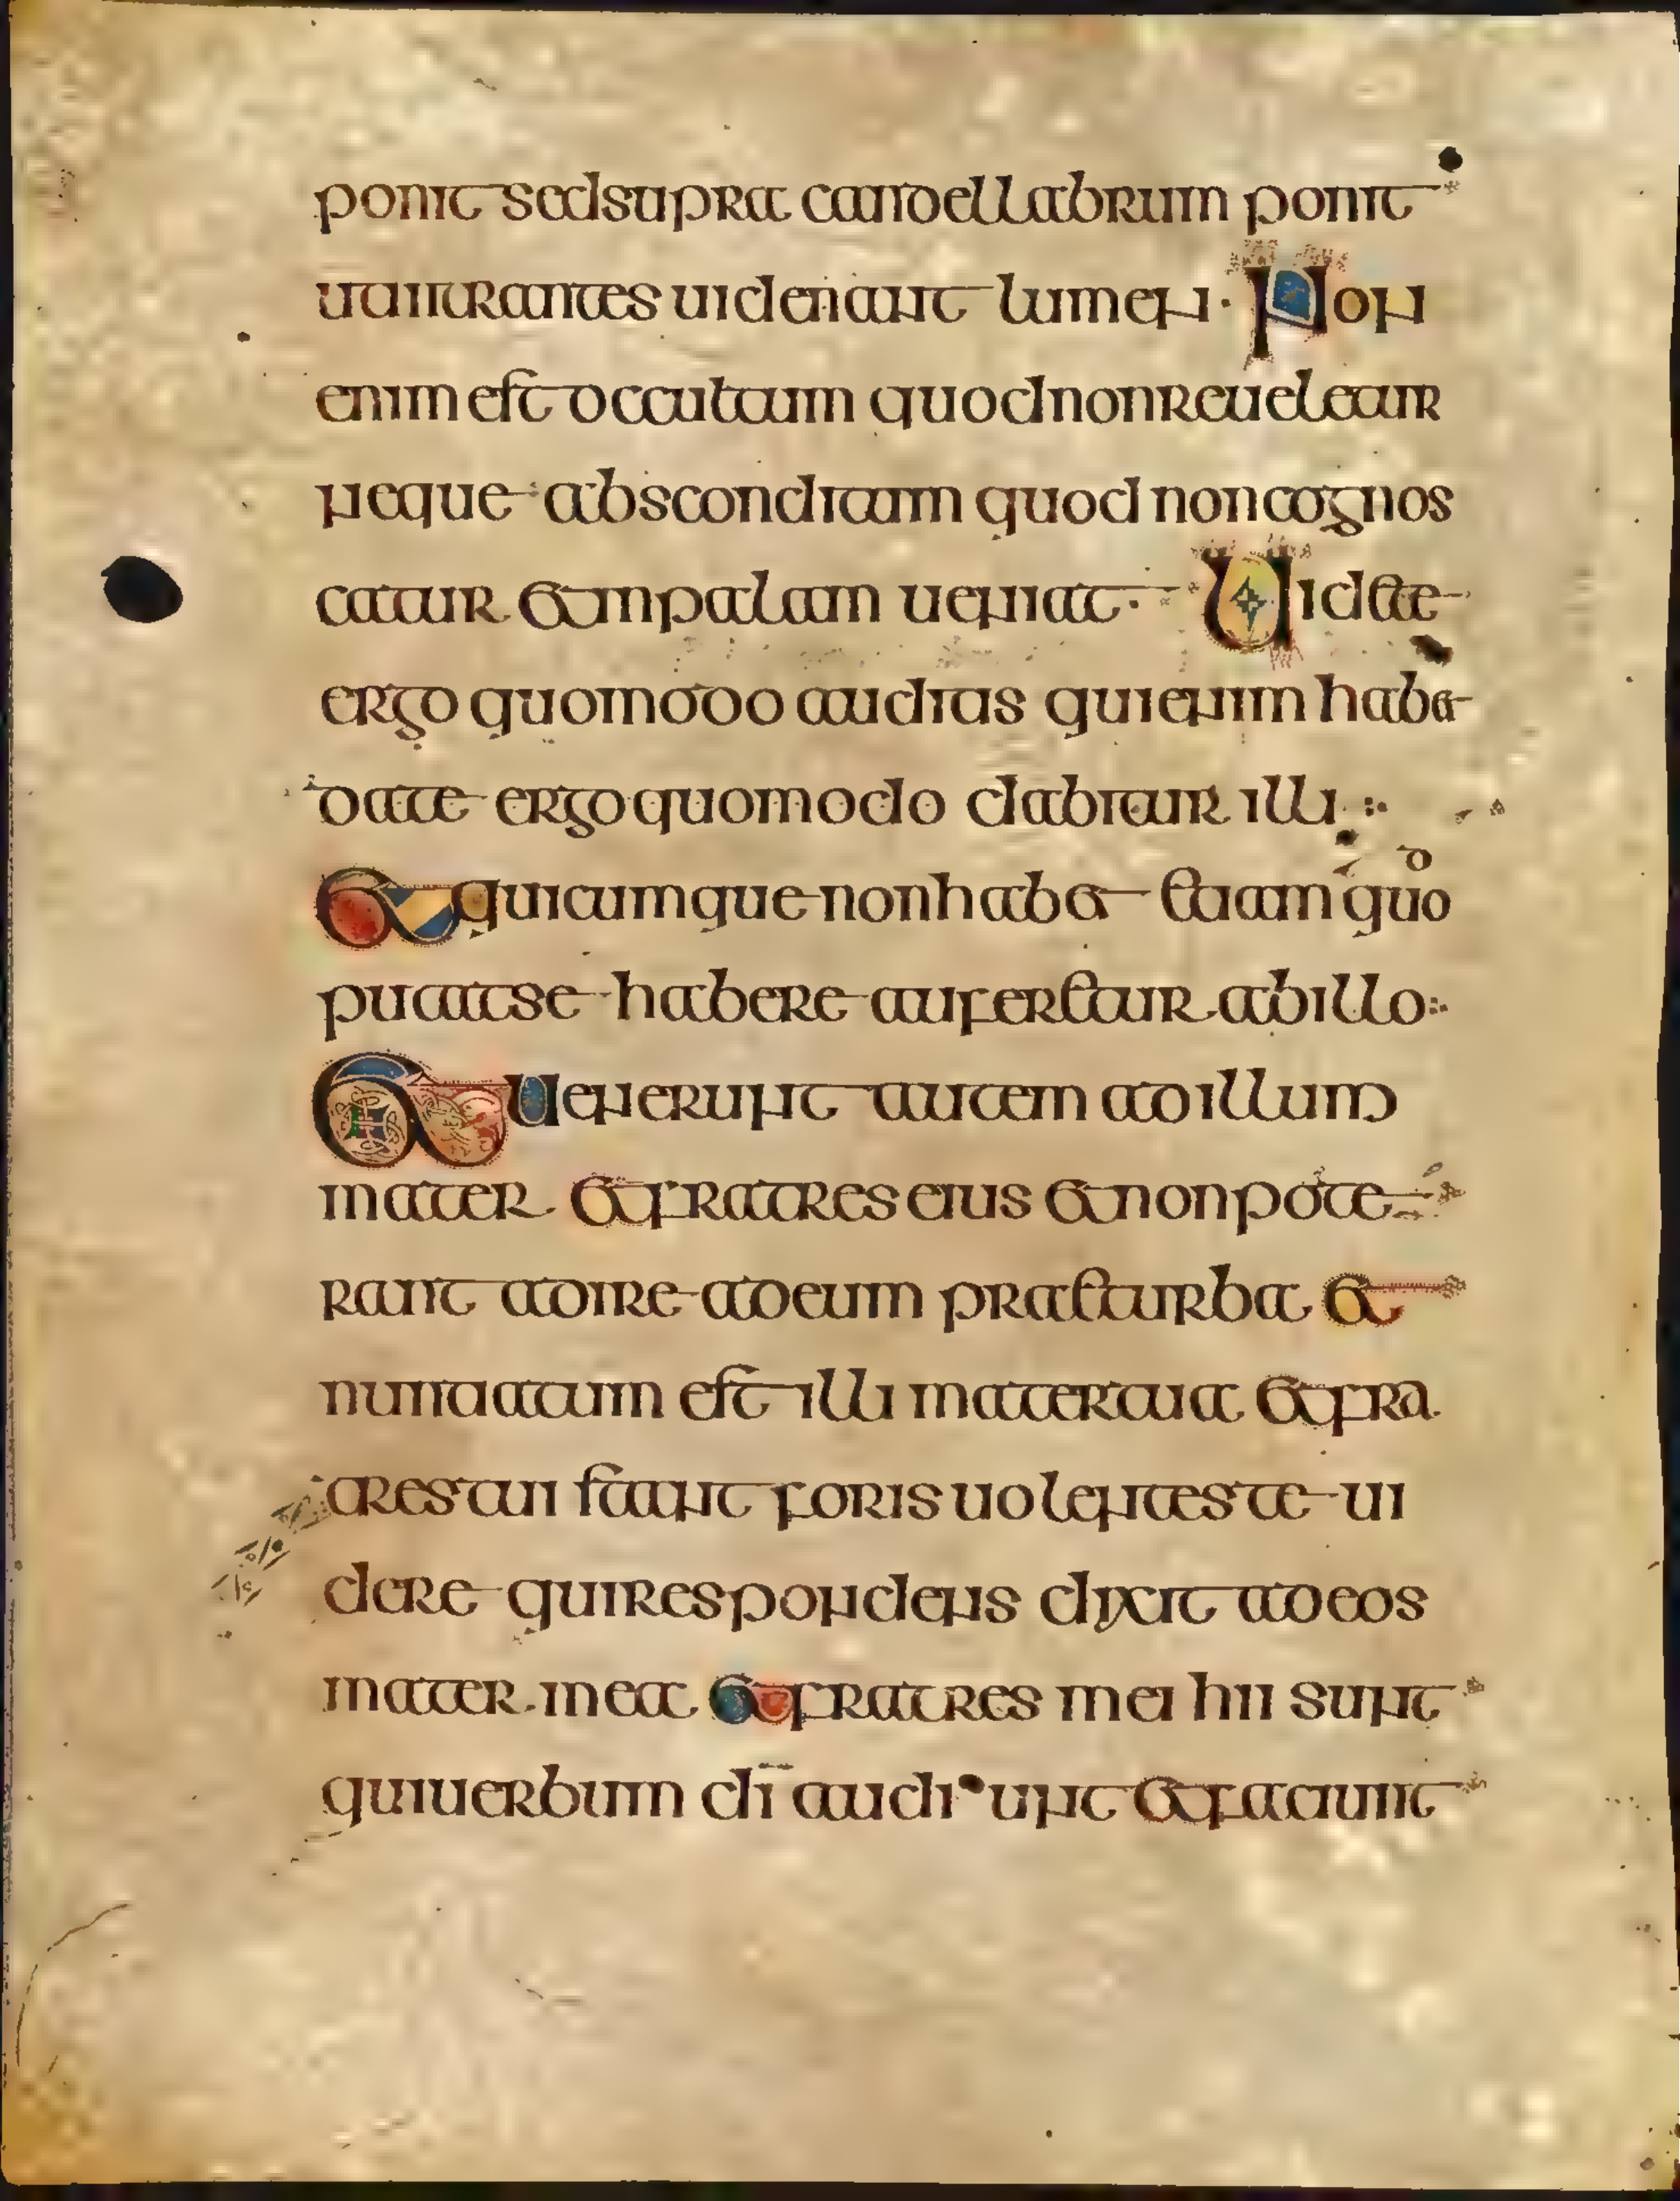 ponit sed supra candellabrum ponit
ut intrantes uideant lumen · Non
enim est occultum quod non reueletur
neque absconditum quod non cognos
catur et in palam ueniat · Uidete
ergo quomodo auditis qui enim habet
date ergo quomodo dabitur illi
Et quicumque non habet etiam quod
putat se habere auferetur ab illo
Et Uenerunt autem ad illum
mater et fratres eius et non pote
rant adire ad eum prae turba et
nuntiatum est illi mater tua et fra
tres tui stant foris uolentes te ui
dere qui respondens dixit ad eos
mater mea et fratres mei hii sunt
qui uerbum dī audiunt et faciunt